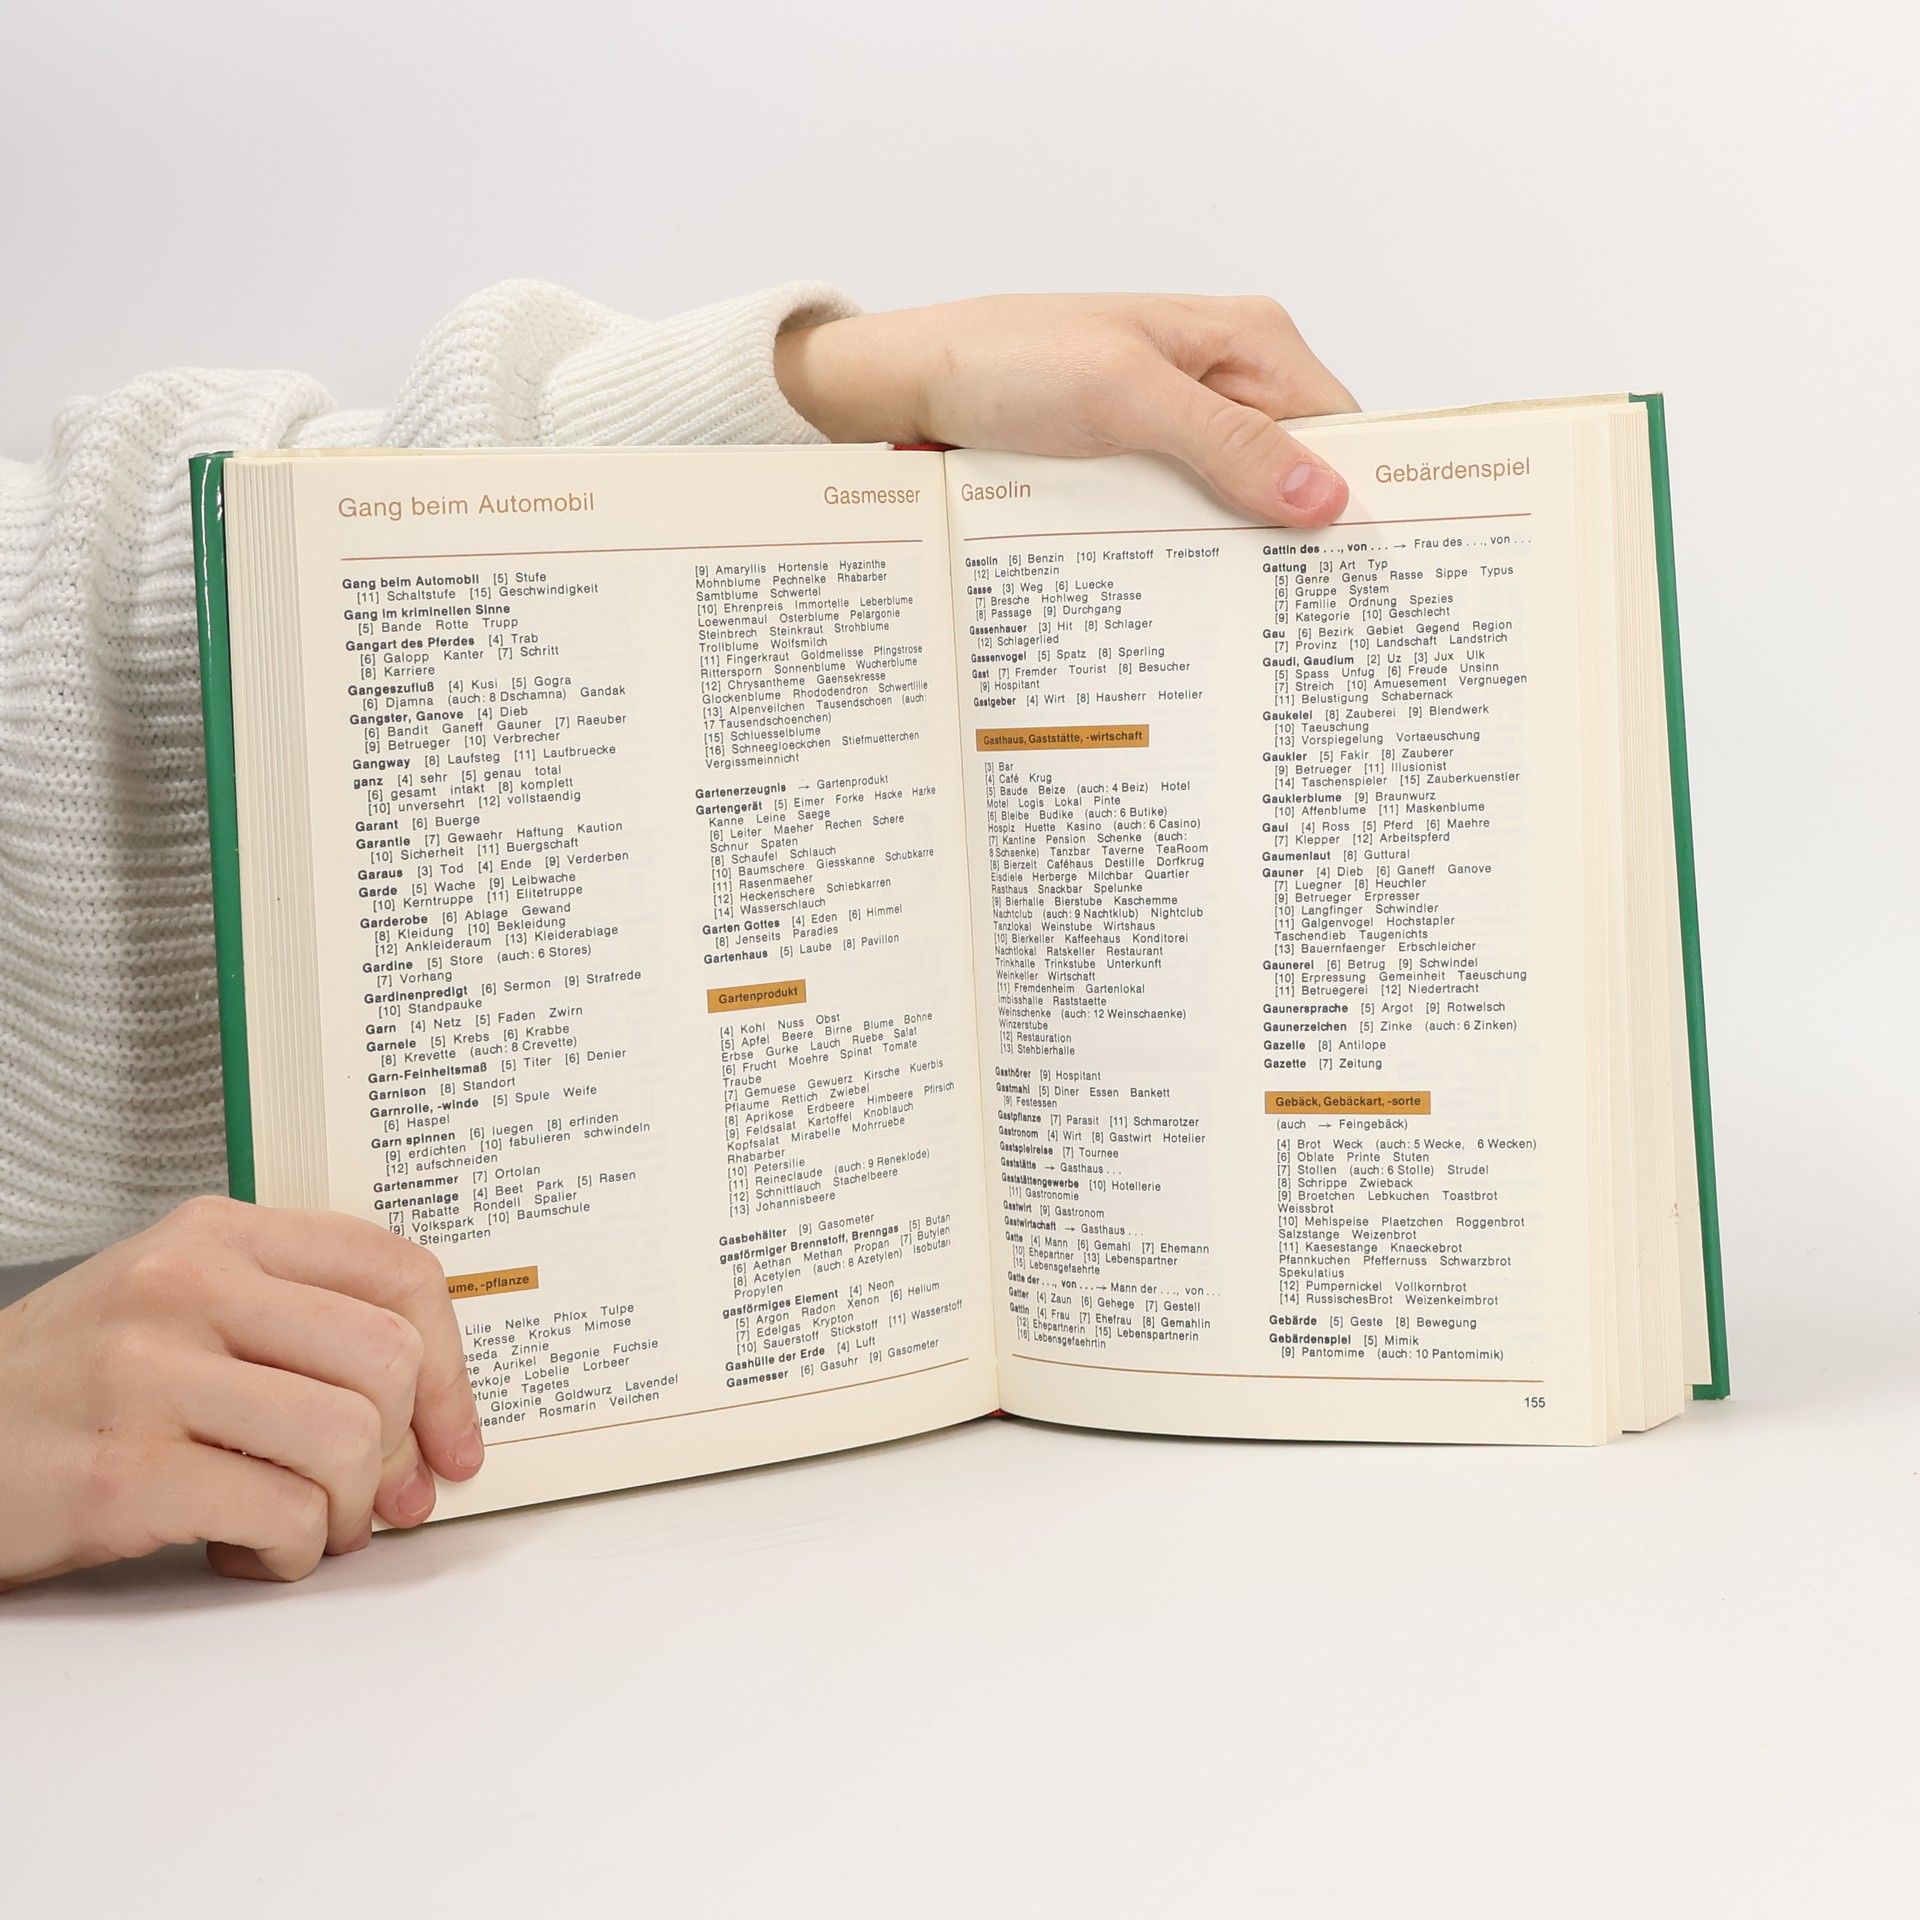 Gang beim Automobil
Gasmesser
Gang beim Automobil [5] Stufe
[11] Schaltstufe [15] Geschwindigkeit
Gang im kriminellen Sinne
[5] Bande Rotte Trupp
Gangart des Pferdes [4] Trab
[6] Galopp Kanter [7] Schritt
[8] Karriere
Gangeszufluß [4] Kusi [5] Gogra
[6] Djamna (auch: 8 Dschamna) Gandak
Gangster, Ganove [4] Dieb
[6] Bandit Ganeff Gauner [7] Raeuber
[9] Betrueger [10] Verbrecher
Gangway [8] Laufsteg [11] Laufbruecke
ganz [4] sehr [5] genau total
[6] gesamt intakt [8] komplett
[10] unversehrt [12] vollstaendig
Garant [6] Buerge
Garantie [7] Gewaehr Haftung Kaution
[10] Sicherheit [11] Buergschaft
Garaus [3] Tod [4] Ende [9] Verderben
Garde [5] Wache [9] Leibwache
[10] Kerntruppe [11] Elitetruppe
Garderobe [6] Ablage Gewand
[8] Kleidung [10] Bekleidung
[12] Ankleideraum [13] Kleiderablage
Gardine [5] Store (auch: 6 Stores)
[7] Vorhang
Gardinenpredigt [6] Sermon [9] Strafrede
[10] Standpauke
Garn [4] Netz [5] Faden Zwirn
Garnele [5] Krebs [6] Krabbe
[8] Krevette (auch: 8 Crevette)
Garn-Feinheitsmaß [5] Titer [6] Denier
Garnison [8] Standort
Garnrolle, -winde [5] Spule Weife
[6] Haspel
Garn spinnen [6] luegen [8] erfinden
[9] erdichten [10] fabulieren schwindeln
[12] aufschneiden
Gartenammer [7] Ortolan
Gartenanlage [4] Beet Park [5] Rasen
[7] Rabatte Rondell Spalier
[9] Volkspark [10] Baumschule
Steingarten
ume, -pflanze
Lilie Nelke Phlox Tulpe
Kresse Krokus Mimose
seda Zinnie
ne Aurikel Begonie Fuchsie
evkoje Lobelie Lorbeer
tunie Tagetes
Gloxinie Goldwurz Lavendel
leander Rosmarin Veilchen
[9] Amaryllis Hortensie Hyazinthe
Mohnblume Pechnelke Rhabarber
Samtblume Schwertel
[10] Ehrenpreis Immortelle Leberblume
Loewenmaul Osterblume Pelargonie
Steinbrech Steinkraut Strohblume
Trollblume Wolfsmilch
[11] Fingerkraut Goldmelisse Pfingstrose
Rittersporn Sonnenblume Wucherblume
[12] Chrysantheme Gaensekresse
Glockenblume Rhododendron Schwertlilie
[13] Alpenveilchen Tausendschoen (auch:
17 Tausendschoenchen)
[15] Schluesselblume
[16] Schneegloeckchen Stiefmuetterchen
Vergissmeinnicht
Gartenerzeugnis → Gartenprodukt
Gartengerät [5] Eimer Forke Hacke Harke
Kanne Leine Saege
[6] Leiter Maeher Rechen Schere
Schnur Spaten
[8] Schaufel Schlauch
[10] Baumschere Giesskanne Schubkarre
[11] Rasenmaeher
[12] Heckenschere Schiebkarren
[14] Wasserschlauch
Garten Gottes [4] Eden [6] Himmel
[8] Jenseits Paradies
Gartenhaus [5] Laube [8] Pavillon
Gartenprodukt
[4] Kohl Nuss Obst
[5] Apfel Beere Birne Blume Bohne
Erbse Gurke Lauch Ruebe Salat
[6] Frucht Moehre Spinat Tomate
Traube
[7] Gemuese Gewuerz Kirsche Kuerbis
Pflaume Rettich Zwiebel
[8] Aprikose Erdbeere Himbeere Pfirsich
[9] Feldsalat Kartoffel Knoblauch
Kopfsalat Mirabelle Mohrruebe
Rhabarber
[10] Petersilie
[11] Reineclaude (auch: 9 Reneklode)
[12] Schnittlauch Stachelbeere
[13] Johannisbeere
Gasbehälter [9] Gasometer
gasförmiger Brennstoff, Brenngas [5] Butan
[6] Aethan Methan Propan [7] Butylen
[8] Acetylen (auch: 8 Azetylen) Isobutan
Propylen
gasförmiges Element [4] Neon
[5] Argon Radon Xenon [6] Helium
[7] Edelgas Krypton
[10] Sauerstoff Stickstoff [11] Wasserstoff
Gashülle der Erde [4] Luft
Gasmesser [6] Gasuhr [9] Gasometer
Gasolin
Gebärdenspiel
Gasolin [6] Benzin [10] Kraftstoff Treibstoff
[12] Leichtbenzin
Gasse [3] Weg [6] Luecke
[7] Bresche Hohlweg Strasse
[8] Passage [9] Durchgang
Gassenhauer [3] Hit [8] Schlager
[12] Schlagerlied
Gassenvogel [5] Spatz [8] Sperling
Gast [7] Fremder Tourist [8] Besucher
[9] Hospitant
Gastgeber [4] Wirt [8] Hausherr Hotelier
Gasthaus, Gaststätte, -wirtschaft
[3] Bar
[4] Café Krug
[5] Baude Beize (auch: 4 Beiz) Hotel
Motel Logis Lokal Pinte
[6] Bleibe Budike (auch: 6 Butike)
Hospiz Huette Kasino (auch: 6 Casino)
[7] Kantine Pension Schenke (auch:
8 Schaenke) Tanzbar Taverne TeaRoom
[8] Bierzelt Caféhaus Destille Dorfkrug
Eisdiele Herberge Milchbar Quartier
Rasthaus Snackbar Spelunke
[9] Bierhalle Bierstube Kaschemme
Nachtclub (auch: 9 Nachtklub) Nightclub
Tanzlokal Weinstube Wirtshaus
[10] Bierkeller Kaffeehaus Konditorei
Nachtlokal Ratskeller Restaurant
Trinkhalle Trinkstube Unterkunft
Weinkeller Wirtschaft
[11] Fremdenheim Gartenlokal
Imbisshalle Raststaette
Weinschenke (auch: 12 Weinschaenke)
Winzerstube
[12] Restauration
[13] Stehbierhalle
Gasthörer [9] Hospitant
Gastmahl [5] Diner Essen Bankett
[9] Festessen
Gastpflanze [7] Parasit [11] Schmarotzer
Gastronom [4] Wirt [8] Gastwirt Hotelier
Gastspielreise [7] Tournee
Gaststätte → Gasthaus . . .
Gaststättengewerbe [10] Hotellerie
[11] Gastronomie
Gastwirt [9] Gastronom
Gastwirtschaft → Gasthaus . . .
Gatte [4] Mann [6] Gemahl [7] Ehemann
[10] Ehepartner [13] Lebenspartner
[15] Lebensgefaehrte
Gatte der . . ., von . . . → Mann der . . ., von . . .
Gatter [4] Zaun [6] Gehege [7] Gestell
Gattin [4] Frau [7] Ehefrau [8] Gemahlin
[12] Ehepartnerin [15] Lebenspartnerin
[16] Lebensgefaehrtin
Gattin des . . ., von . . . → Frau des . . ., von . . .
Gattung [3] Art Typ
[5] Genre Genus Rasse Sippe Typus
[6] Gruppe System
[7] Familie Ordnung Spezies
[9] Kategorie [10] Geschlecht
Gau [6] Bezirk Gebiet Gegend Region
[7] Provinz [10] Landschaft Landstrich
Gaudi, Gaudium [2] Uz [3] Jux Ulk
[5] Spass Unfug [6] Freude Unsinn
[7] Streich [10] Amuesement Vergnuegen
[11] Belustigung Schabernack
Gaukelei [8] Zauberei [9] Blendwerk
[10] Taeuschung
[13] Vorspiegelung Vortaeuschung
Gaukler [5] Fakir [8] Zauberer
[9] Betrueger [11] Illusionist
[14] Taschenspieler [15] Zauberkuenstler
Gauklerblume [9] Braunwurz
[10] Affenblume [11] Maskenblume
Gaul [4] Ross [5] Pferd [6] Maehre
[7] Klepper [12] Arbeitspferd
Gaumenlaut [8] Guttural
Gauner [4] Dieb [6] Ganeff Ganove
[7] Luegner [8] Heuchler
[9] Betrueger Erpresser
[10] Langfinger Schwindler
[11] Galgenvogel Hochstapler
Taschendieb Taugenichts
[13] Bauernfaenger Erbschleicher
Gaunerei [6] Betrug [9] Schwindel
[10] Erpressung Gemeinheit Taeuschung
[11] Betruegerei [12] Niedertracht
Gaunersprache [5] Argot [9] Rotwelsch
Gaunerzeichen [5] Zinke (auch: 6 Zinken)
Gazelle [8] Antilope
Gazette [7] Zeitung
Gebäck, Gebäckart, -sorte
(auch → Feingebäck)
[4] Brot Weck (auch: 5 Wecke, 6 Wecken)
[6] Oblate Printe Stuten
[7] Stollen (auch: 6 Stolle) Strudel
[8] Schrippe Zwieback
[9] Broetchen Lebkuchen Toastbrot
Weissbrot
[10] Mehlspeise Plaetzchen Roggenbrot
Salzstange Weizenbrot
[11] Kaesestange Knaeckebrot
Pfannkuchen Pfeffernuss Schwarzbrot
Spekulatius
[12] Pumpernickel Vollkornbrot
[14] RussischesBrot Weizenkeimbrot
Gebärde [5] Geste [8] Bewegung
Gebärdenspiel [5] Mimik
[9] Pantomime (auch: 10 Pantomimik)
155